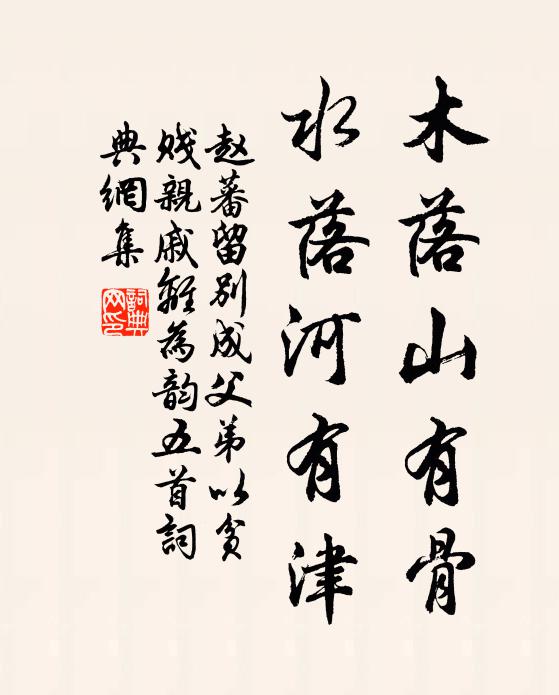 木落山有骨
水落河有津
赵蕃留别成父弟以贫
贱親戚離為韵五首詞
典網集
詞典網印